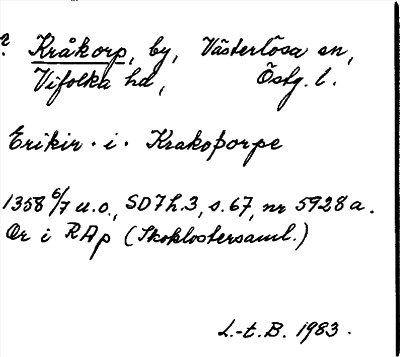 ? Kråkorp, by, Västerlösa sn,
Vifolka hd, Östg. l.
Erikir · i · Krakoþorpe
1358 6/7 u.o., SD 7 h.3, s. 67, nr 5928a.
Or i RAp (Skoklostersaml.)
L.-t. B. 1983.